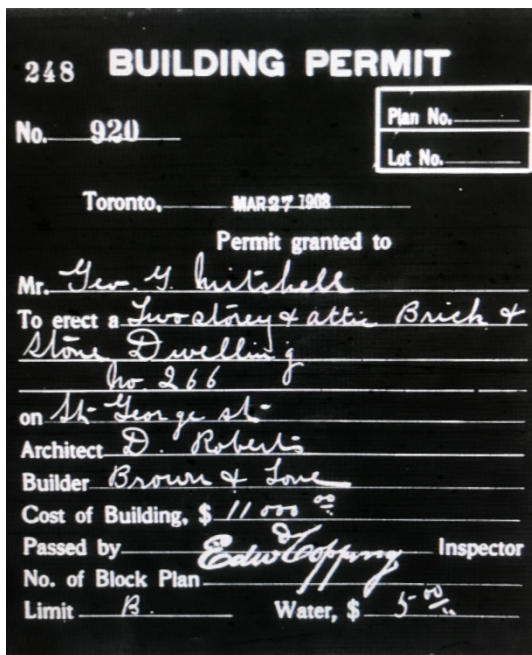 248 BUILDING PERMIT
Plan No.
No. 920
Lot No.
Toronto, MAR 27 1908
Permit granted to
Mr. Geo. G. Mitchell
To erect a Two storey & attic Brick &
Stone Dwelling
No 266
on St George st-
Architect D. Roberts
Builder Brown & Love
Cost of Building, $ 11 000 00
Passed by Edw Topping Inspector
No. of Block Plan
Limit B. Water, $ 5 00